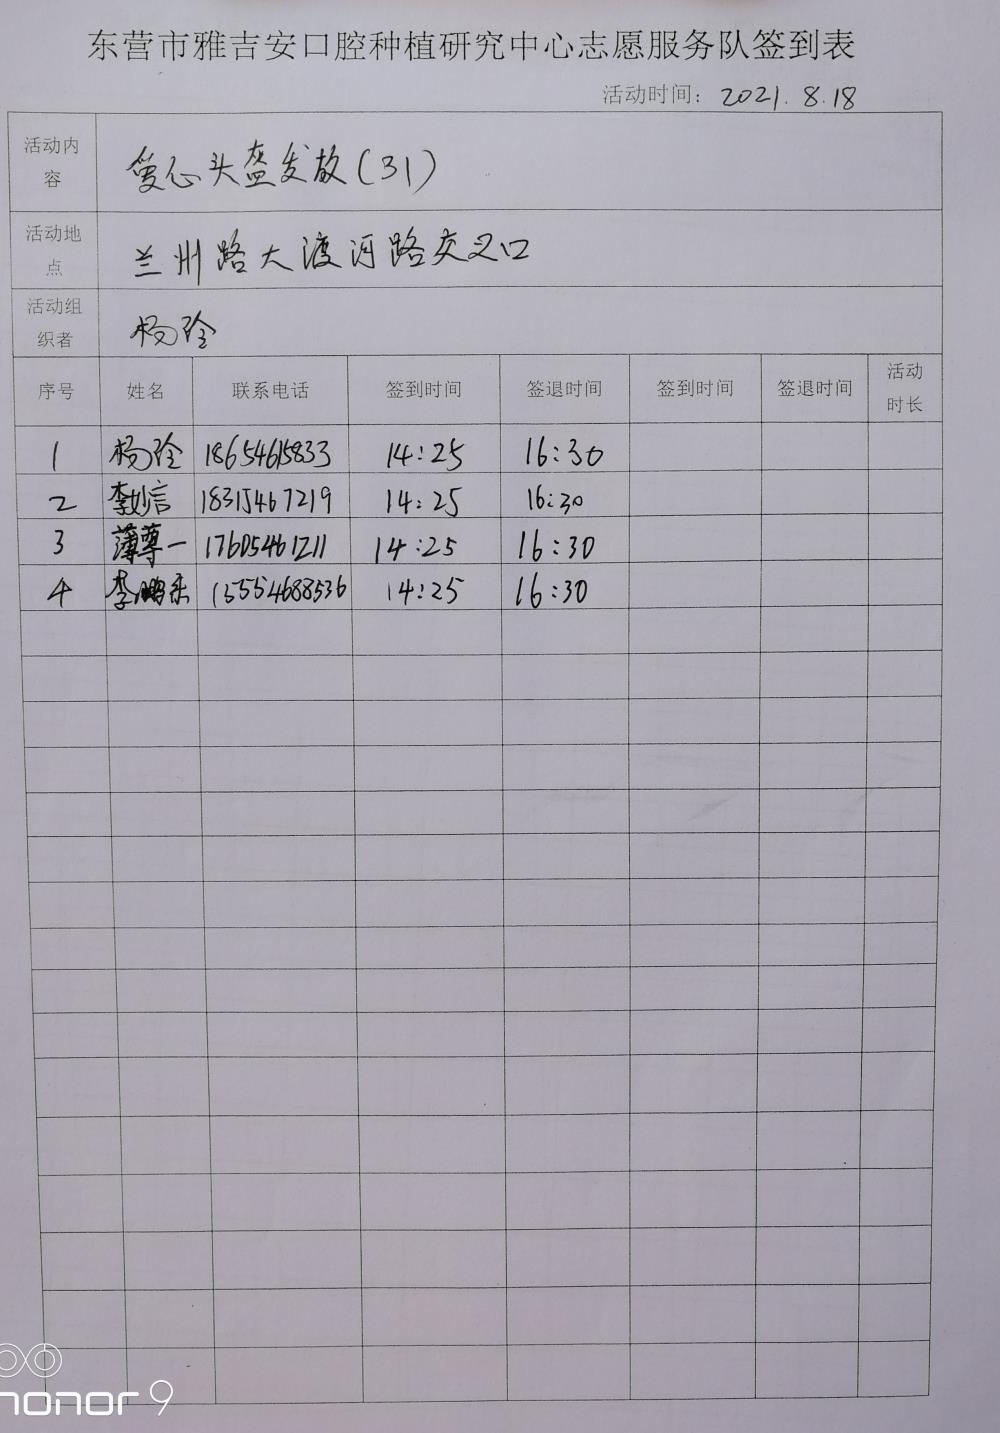 东营市雅吉安口腔种植研究中心志愿服务队签到表
活动时间: 2021.8.18
活动内容 爱心头盔发放(31)
活动地点 兰州路大渡河路交叉口
活动组织者 杨玲
序号 姓名 联系电话 签到时间 签退时间 签到时间 签退时间 活动时长
1 杨玲 18654615833 14:25 16:30
2 李妙言 18315467219 14:25 16:30
3 薄尊一 17605461211 14:25 16:30
4 李鹏 15554688536 14:25 16:30
honor 9